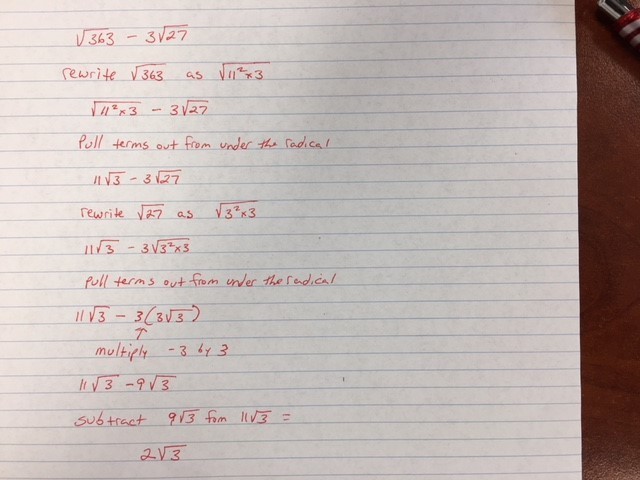 √363 - 3√27
rewrite √363 as √11²×3
√11²×3 - 3√27
Pull terms out from under the radical
11√3 - 3√27
rewrite √27 as √3²×3
11√3 - 3√3²×3
Pull terms out from under the radical
11√3 - 3(3√3)
↑
multiply -3 by 3
11√3 - 9√3
subtract 9√3 fom 11√3 =
2√3